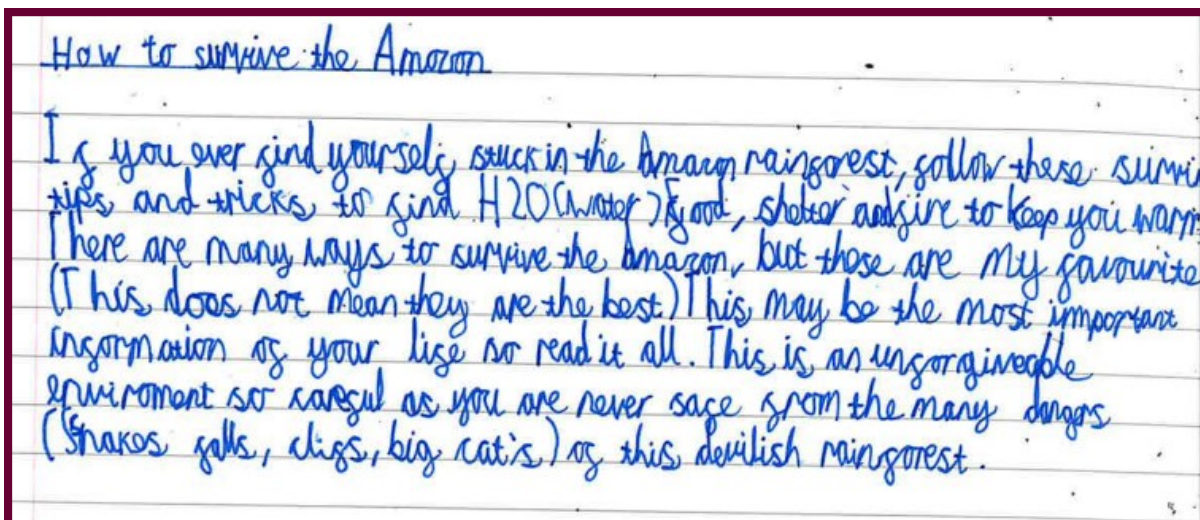 How to survive the Amazon
If you ever find yourself stuck in the Amazon rainforest, follow these survi
tips and tricks to find H2O (water) food, shelter and fire to keep you warm
There are many ways to survive the Amazon, but these are my favourite
(This does not mean they are the best) This may be the most important
information of your life so read it all. This is an unforgiveable
enviroment so careful as you are never safe from the many dangers
(Snakes falls, cliffs, big cat's) of this devilish rainforest.